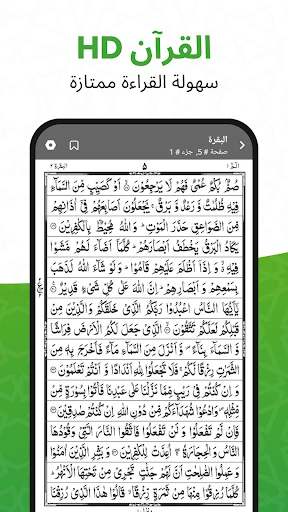 القرآن HD
سهولة القراءة ممتازة
البقرة
صفحة # 5, جزء # 1
البقرة ٢
٥
الٓمّٓ ١
صُمٌّۢ بُكْمٌ عُمْیٌ فَهُمْ لَا یَرْجِعُوْنَ ۙ اَوْ كَصَیِّبٍ مِّنَ السَّمَآءِ
فِیْهِ ظُلُمٰتٌ وَّ رَعْدٌ وَّ بَرْقٌ ۚ یَجْعَلُوْنَ اَصَابِعَهُمْ فِیْۤ اٰذَانِهِمْ
مِّنَ الصَّوَاعِقِ حَذَرَ الْمَوْتِ ؕ وَ اللّٰهُ مُحِیْطٌۢ بِالْكٰفِرِیْنَ
یَكَادُ الْبَرْقُ یَخْطَفُ اَبْصَارَهُمْ ؕ كُلَّمَاۤ اَضَآءَ لَهُمْ مَّشَوْا
فِیْهِ ۙ وَ اِذَاۤ اَظْلَمَ عَلَیْهِمْ قَامُوْا ؕ وَ لَوْ شَآءَ اللّٰهُ لَذَهَبَ
بِسَمْعِهِمْ وَ اَبْصَارِهِمْ ؕ اِنَّ اللّٰهَ عَلٰى كُلِّ شَیْءٍ قَدِیْرٌ
یٰۤاَیُّهَا النَّاسُ اعْبُدُوْا رَبَّكُمُ الَّذِیْ خَلَقَكُمْ وَ الَّذِیْنَ مِنْ
قَبْلِكُمْ لَعَلَّكُمْ تَتَّقُوْنَ ۙ الَّذِیْ جَعَلَ لَكُمُ الْاَرْضَ فِرَاشًا
وَّ السَّمَآءَ بِنَآءً ۪ وَّ اَنْزَلَ مِنَ السَّمَآءِ مَآءً فَاَخْرَجَ بِهٖ مِنَ
الثَّمَرٰتِ رِزْقًا لَّكُمْ ۚ فَلَا تَجْعَلُوْا لِلّٰهِ اَنْدَادًا وَّ اَنْتُمْ تَعْلَمُوْنَ
وَ اِنْ كُنْتُمْ فِیْ رَیْبٍ مِّمَّا نَزَّلْنَا عَلٰى عَبْدِنَا فَاْتُوْا بِسُوْرَةٍ مِّنْ
مِّثْلِهٖ ۪ وَ ادْعُوْا شُهَدَآءَكُمْ مِّنْ دُوْنِ اللّٰهِ اِنْ كُنْتُمْ صٰدِقِیْنَ
فَاِنْ لَّمْ تَفْعَلُوْا وَ لَنْ تَفْعَلُوْا فَاتَّقُوا النَّارَ الَّتِیْ وَقُوْدُهَا
النَّاسُ وَ الْحِجَارَةُ ۖۚ اُعِدَّتْ لِلْكٰفِرِیْنَ وَ بَشِّرِ الَّذِیْنَ اٰمَنُوْا
وَ عَمِلُوا الصّٰلِحٰتِ اَنَّ لَهُمْ جَنّٰتٍ تَجْرِیْ مِنْ تَحْتِهَا الْاَنْهٰرُ ؕ
كُلَّمَا رُزِقُوْا مِنْهَا مِنْ ثَمَرَةٍ رِّزْقًا ۙ قَالُوْا هٰذَا الَّذِیْ رُزِقْنَا